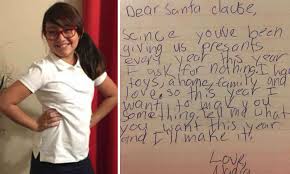 Dear Santa clause,
Scince you've been
giving us presants
every year this year
I ask for nothing. I have
toys, a home, family and
love, so this year I
want to make you
something, tell me what
you want this year
and I'll make it!
Love,